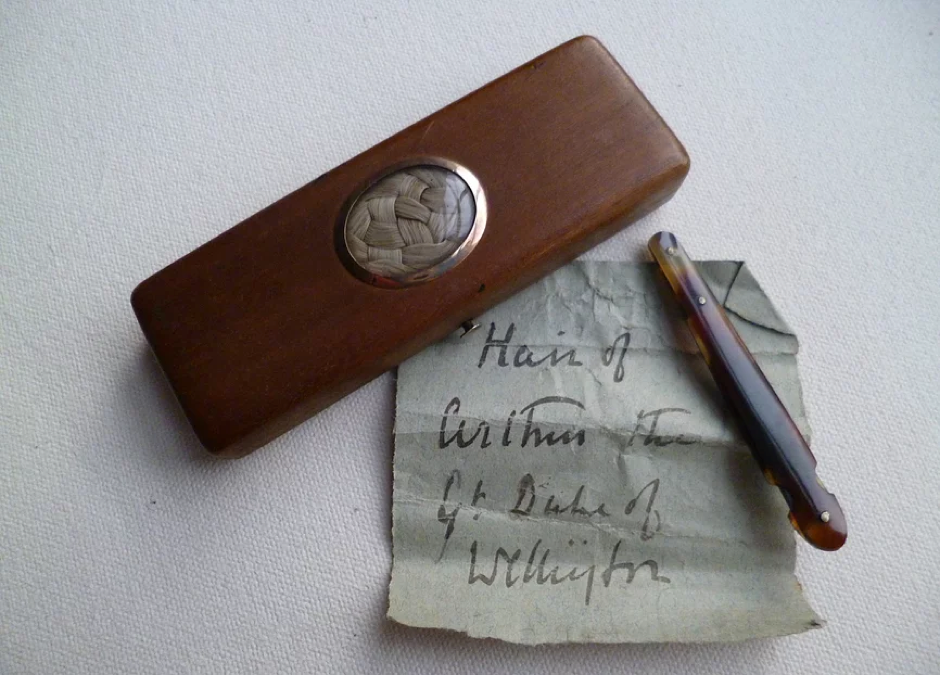 Hair of
Arthur the
Gt. Duke of
Wellington